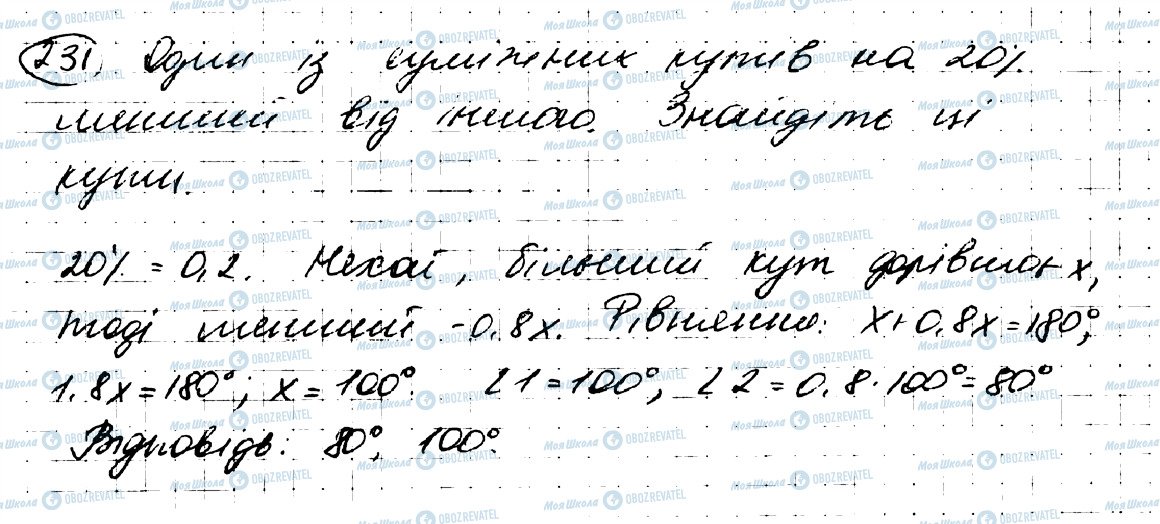 231. Один із суміжних кутів на 20%
менший від іншого. Знайдіть ці
кути.
20% = 0,2. Нехай, більший кут дорівнює x,
тоді менший - 0,8x. Рівняння: x+0,8x=180°;
1,8x=180°; x=100°. ∠1=100°, ∠2=0,8·100°=80°
Відповідь: 80°, 100°.